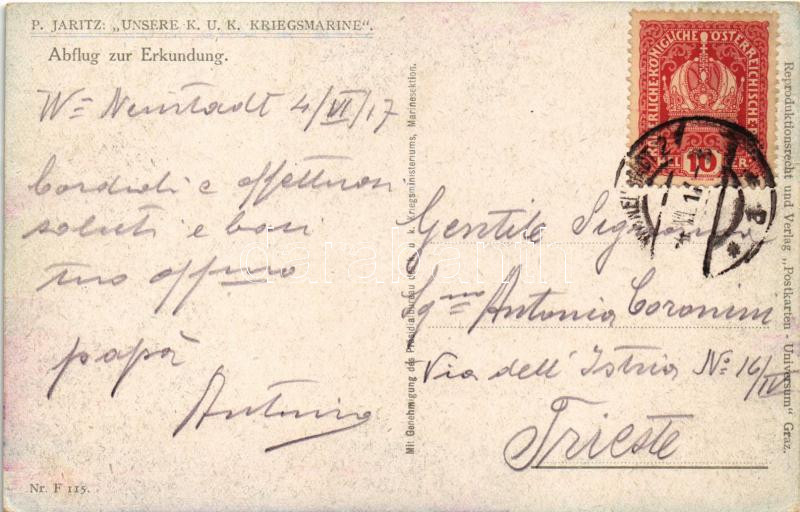 P. JARITZ: „UNSERE K. U. K. KRIEGSMARINE".
Abflug zur Erkundung.
Wr Neustadt 4/VI/17
Cordiali e affettuosi
saluti e baci
tuo
papà
Antonio
Nr. F 115.
Mit Genehmigung des Präsidialbureau des k. u. k. Kriegsministeriums, Marinesektion.
KAISERLICHE KÖNIGLICHE ÖSTERREICHISCHE
10
Gentile Signora
Sgna Antonia Coronini
Via dell' Istria No 16/IV
Trieste
Reproduktionsrecht und Verlag „Postkarten - Universum" Graz.
darabanth